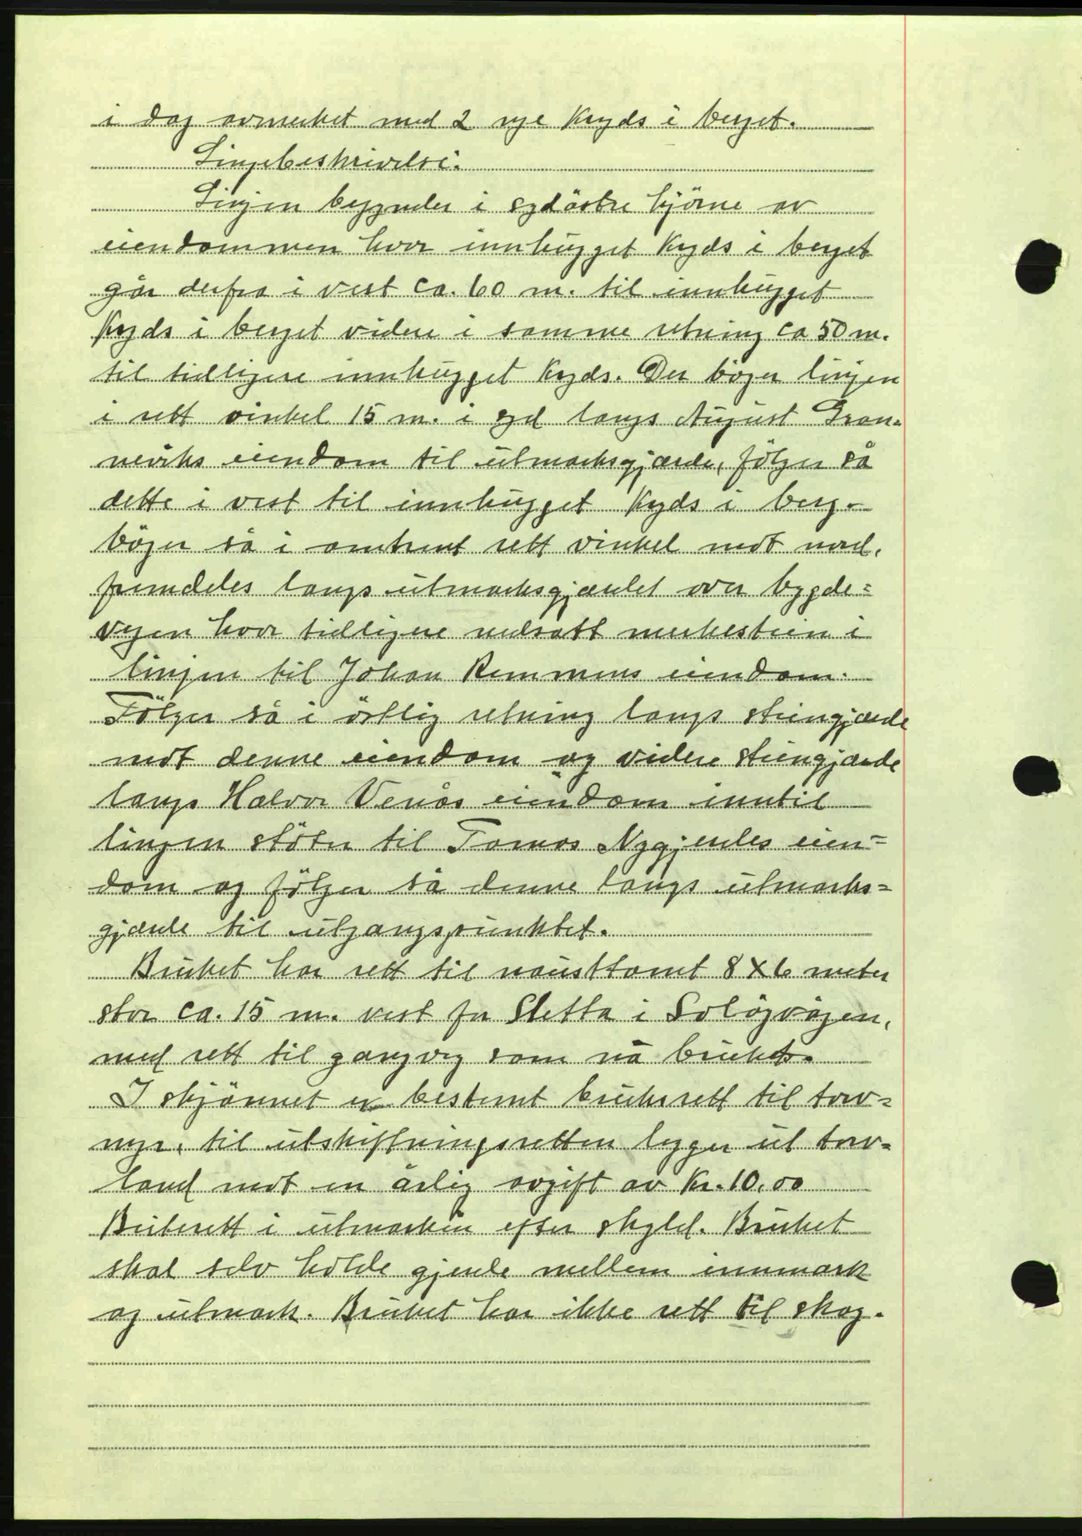 i dag avmerket med 2 nye kryds i berget.
Linjebeskrivelse.
Linjen begynder i sydöstre hjörne av
eiendommen hvor innhugget kryds i berget
går derfra i vest ca. 60 m. til innhugget
kryds i berget videre i samme retning ca 50 m.
til tidligere innhugget kryds. Der böger linjen
i rett vinkel 15 m. i syd langs August Gran-
neviks eiendom til utmarksgjærde, fölger så
dette i vest til innhugget kryds i berg.
böger så i omtrent rett vinkel mot nord,
fremdeles langs utmarksgjærdet over bygde=
vegen hvor tidligere nedsatt merkestein i
linjen til Johan Remmens eiendom.
Fölger så i östlig retning langs steingjærde
mot denne eiendom og videre steingjærde
langs Halvor Venås eiendom inntil
linjen stöter til Tomas Nygjerdes eien=
dom og fölger så denne langs utmarks=
gjærde til utgangspunktet.
Bruket har rett til nausttomt 8 X 6 meter
stor ca. 15 m. vest for Sletta i Solögvågen,
med rett til gangveg som nå brukes.
I skjönnet er bestemt bruksrett til torv=
myr, til utskiftningsretten legger ut torv=
land mot en årlig avgift av Kr. 10,00
Beiterett i utmarken efter skyld. Bruket
skal selv holde gjerde mellem innmark
og utmark. Bruket har ikke rett til skog.